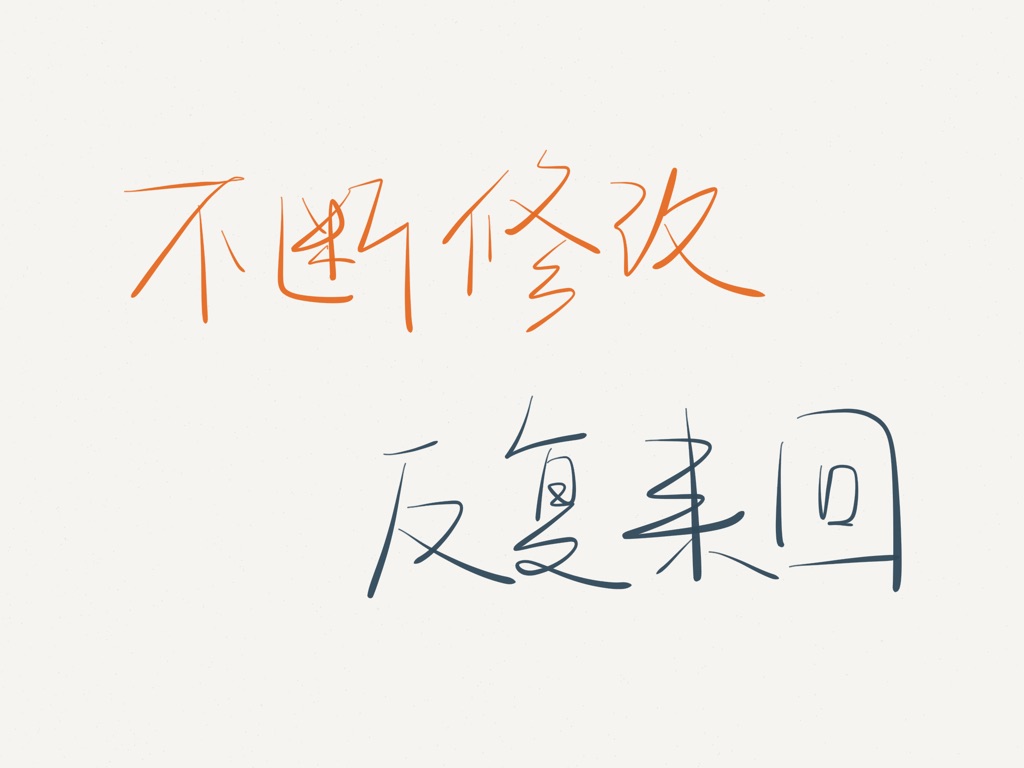 不断修改
反复来回